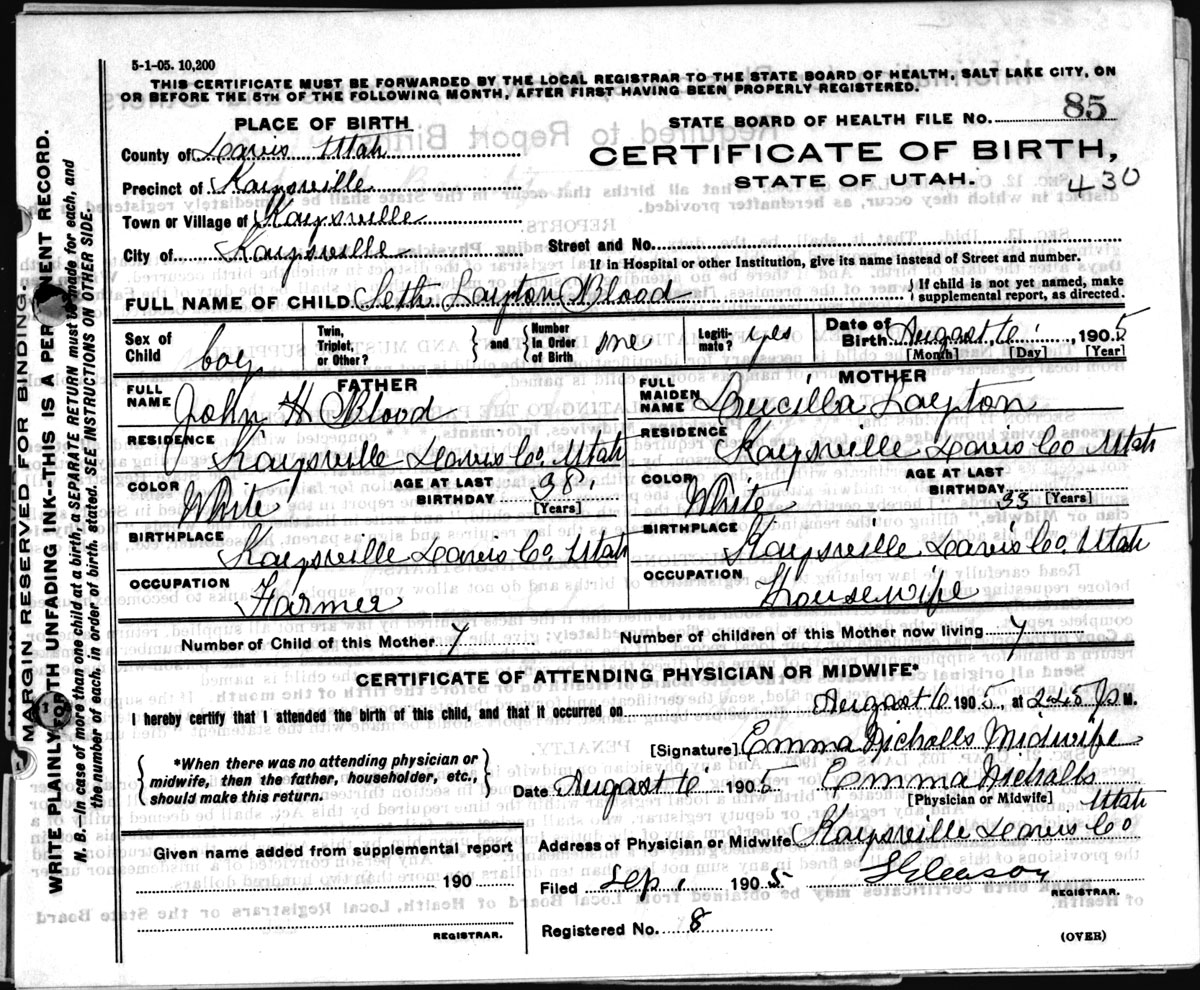 5-1-05. 10,200
THIS CERTIFICATE MUST BE FORWARDED BY THE LOCAL REGISTRAR TO THE STATE BOARD OF HEALTH, SALT LAKE CITY, ON
OR BEFORE THE 5TH OF THE FOLLOWING MONTH, AFTER FIRST HAVING BEEN PROPERLY REGISTERED.
PLACE OF BIRTH
STATE BOARD OF HEALTH FILE No. 85
County of Davis Utah
CERTIFICATE OF BIRTH,
STATE OF UTAH.
430
Precinct of Kaysville
Town or Village of Kaysville
City of Kaysville
Street and No.
If in Hospital or other Institution, give its name instead of Street and number.
FULL NAME OF CHILD. Seth Layton Blood
If child is not yet named, make supplemental report, as directed.
Sex of Child boy
Twin, Triplet, or Other?
and
Number in Order of Birth one
Legiti-mate? yes
Date of Birth August 6, 1905
[Month] [Day] [Year]
FATHER
FULL NAME John H Blood
RESIDENCE Kaysville Davis Co, Utah
COLOR White
AGE AT LAST BIRTHDAY 38
[Years]
BIRTHPLACE Kaysville Davis Co, Utah
OCCUPATION Farmer
MOTHER
FULL MAIDEN NAME Drucilla Layton
RESIDENCE Kaysville Davis Co Utah
COLOR White
AGE AT LAST BIRTHDAY 33 [Years]
BIRTHPLACE Kaysville Davis Co, Utah
OCCUPATION Housewife
Number of Child of this Mother 7
Number of children of this Mother now living 7
CERTIFICATE OF ATTENDING PHYSICIAN OR MIDWIFE*
I hereby certify that I attended the birth of this child, and that it occurred on August 6 1905, at 2.45 P M.
*When there was no attending physician or
midwife, then the father, householder, etc.,
should make this return.
[Signature] Emma Nicholls Midwife
Date August 6 1905 Emma Nicholls
[Physician or Midwife]
Address of Physician or Midwife Kaysville Davis Co Utah
Given name added from supplemental report
190
REGISTRAR.
Filed Sep 1 1905 S Gleason
REGISTRAR.
Registered No. 8
(OVER)
MARGIN RESERVED FOR BINDING.
WRITE PLAINLY WITH UNFADING INK--THIS IS A PERMANENT RECORD.
N. B.—In case of more than one child at a birth, a SEPARATE RETURN must be made for each, and
the number of each, in order of birth, stated. SEE INSTRUCTIONS ON OTHER SIDE.